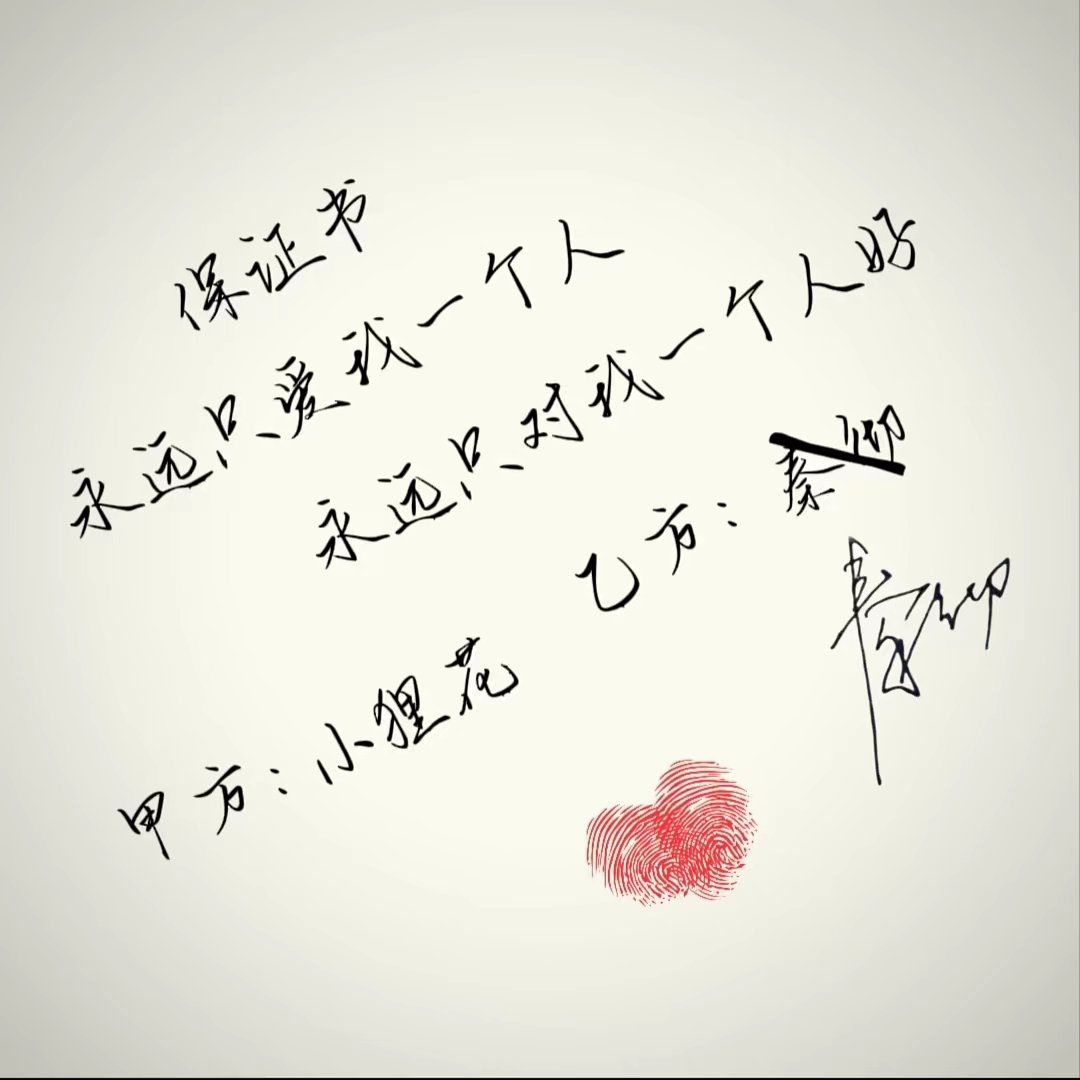 保证书
永远只爱我一个人
永远只对我一个人好
乙方：秦
甲方：小狸花